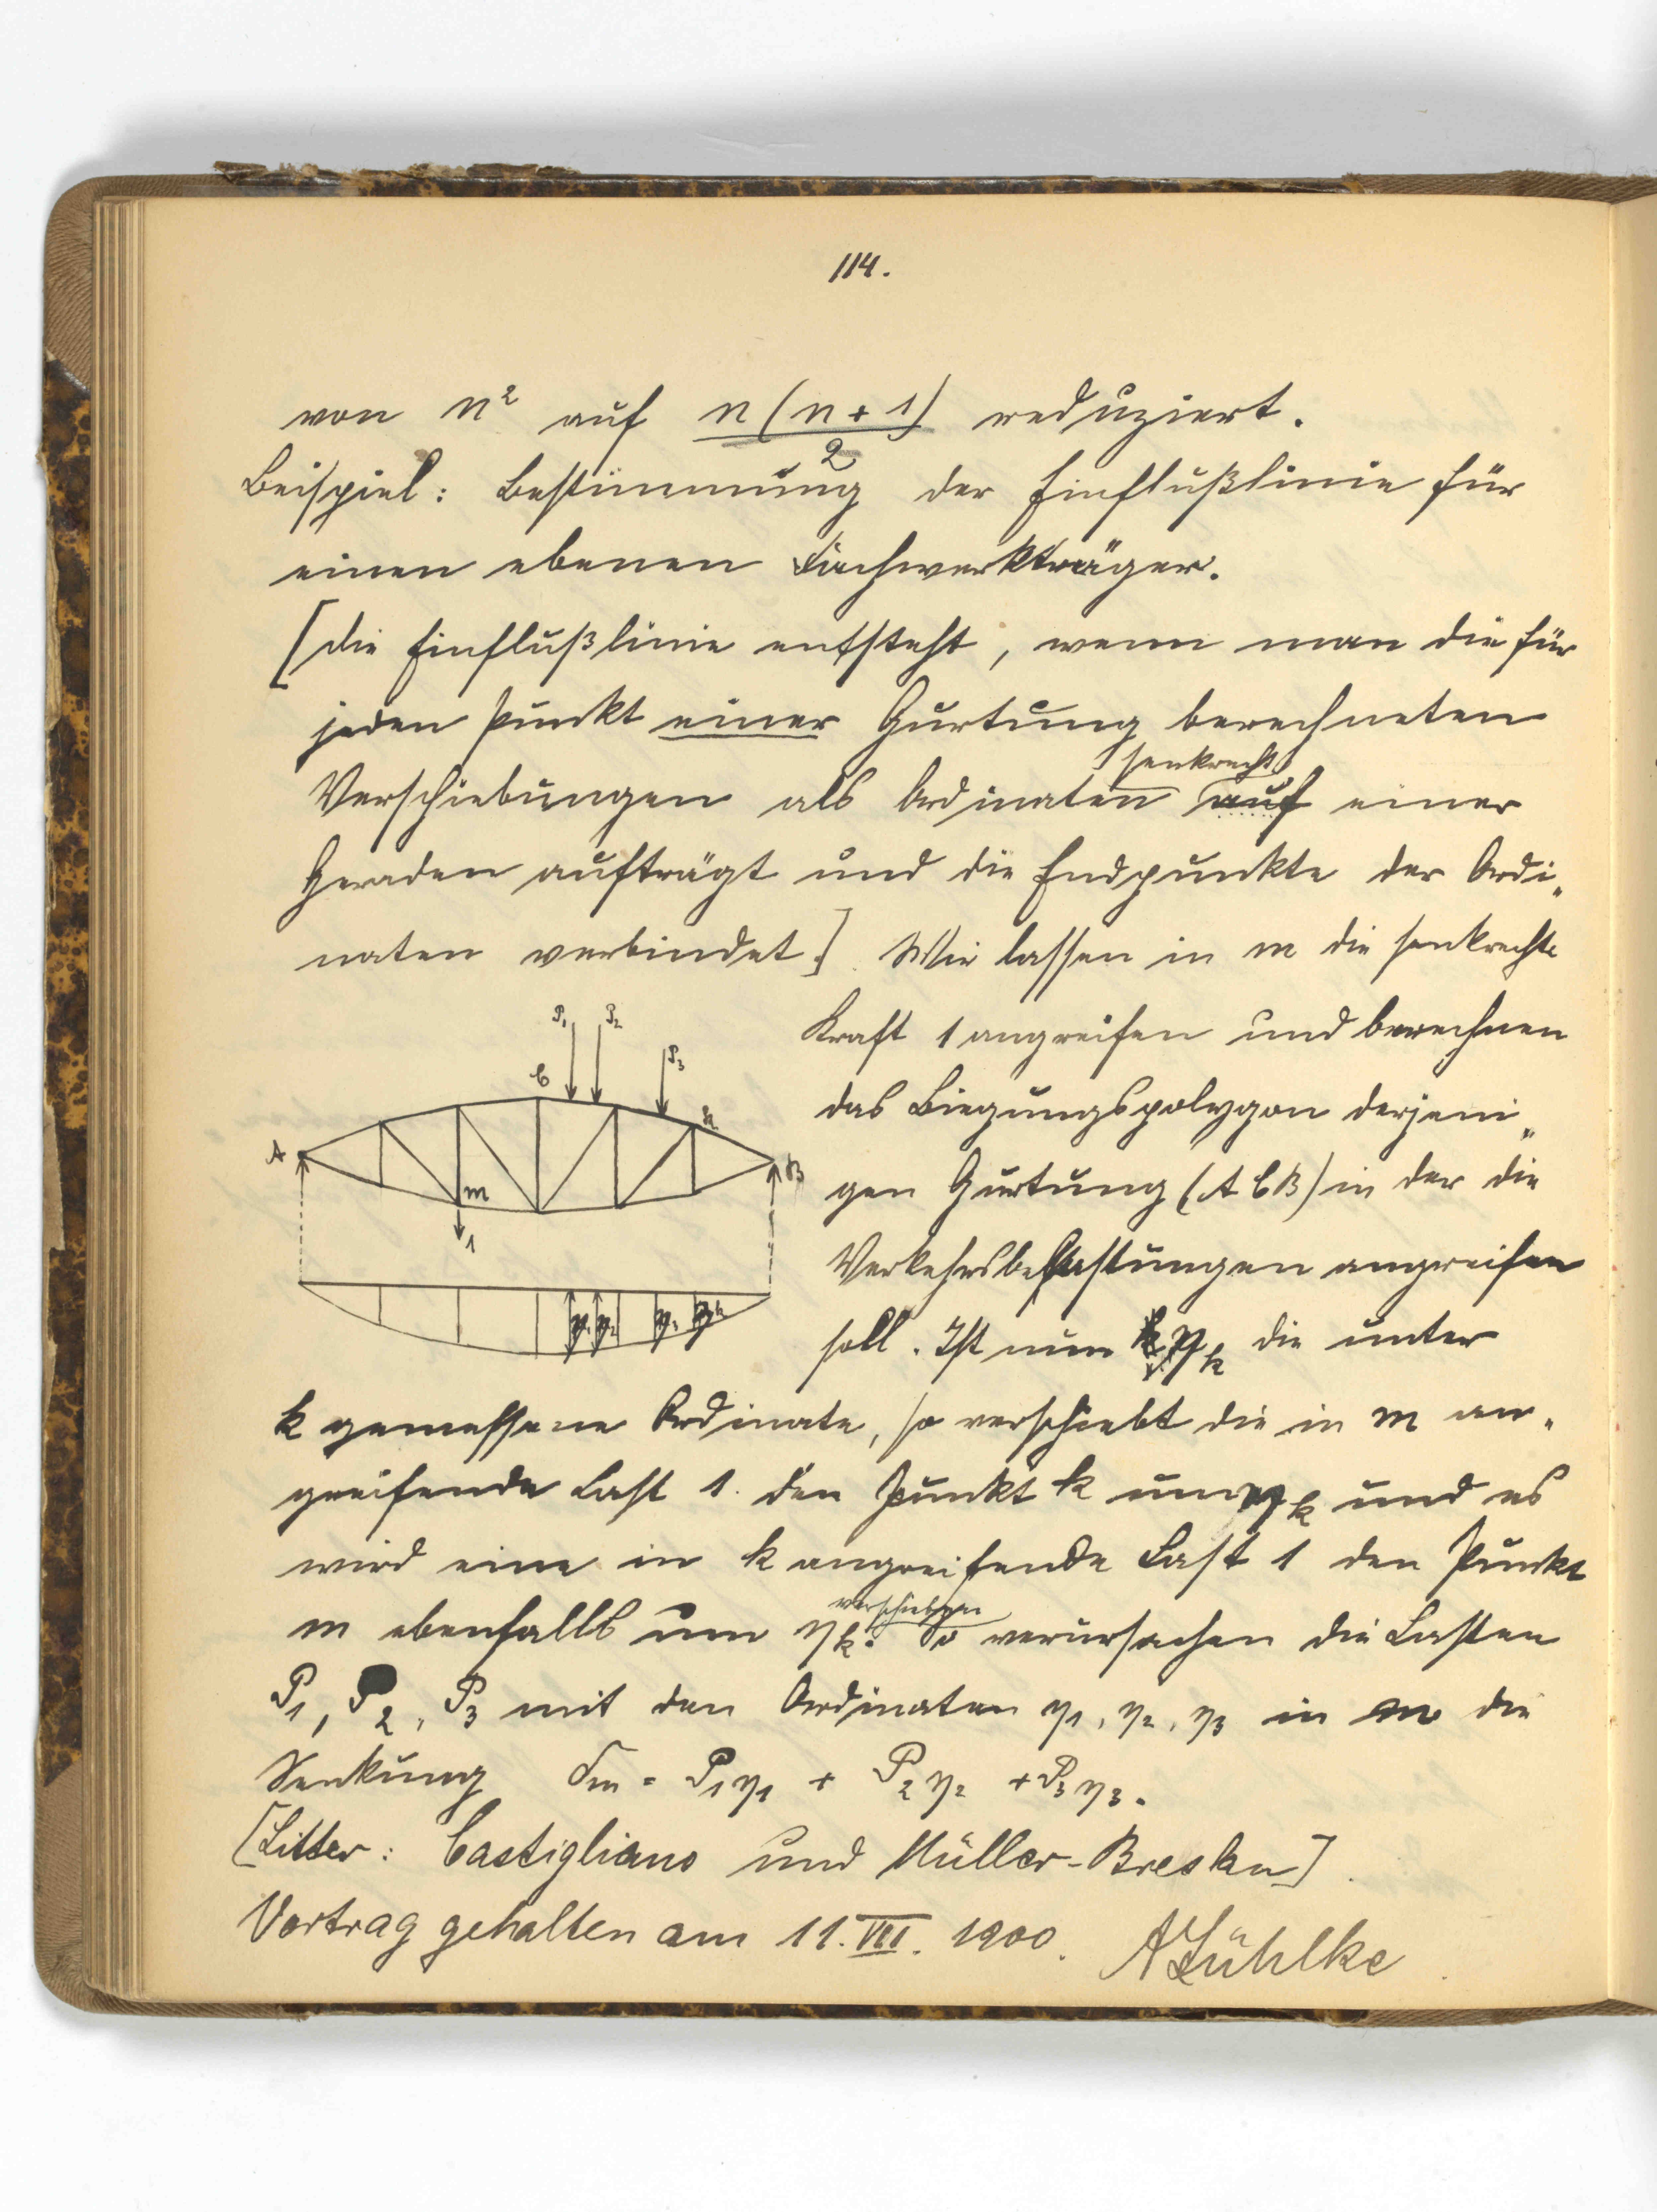 114.
von n² auf n(n+1)/2 reduziert.
Beispiel: Bestimmung der Einflußlinie für
einen ebenen Fachwerkträger.
[die Einflußlinie entsteht, wenn man die für
jeden Punkt einer Gurtung berechneten
senkrecht
Verschiebungen als Ordinaten auf einer
Geraden aufträgt und die Endpunkte der Ordi„
naten verbindet]. Wir lassen in m die senkrechte
P₁ P₂ P₃
C k
A m B
1
η₁ η₂ η₃ ηk
Kraft 1 angreifen und berechnen
das Biegungspolygon derjeni„
gen Gurtung (ACB) in der die
Verkehrsbelastungen angreifen
soll. Ist nun ηk die unter
k gemessene Ordinate, so verschiebt die in m an„
greifende Last 1 den Punkt k um ηk und es
wird eine in k angreifende Last 1 den Punkt
verschieben
m ebenfalls um ηk. So verursachen die Lasten
P₁, P₂, P₃ mit den Ordinaten η₁, η₂, η₃ in m die
Senkung δm = P₁η₁ + P₂η₂ + P₃η₃.
[Litter: Castigliano und Müller-Breslau].
Vortrag gehalten am 11. VII. 1900. A Lühlke